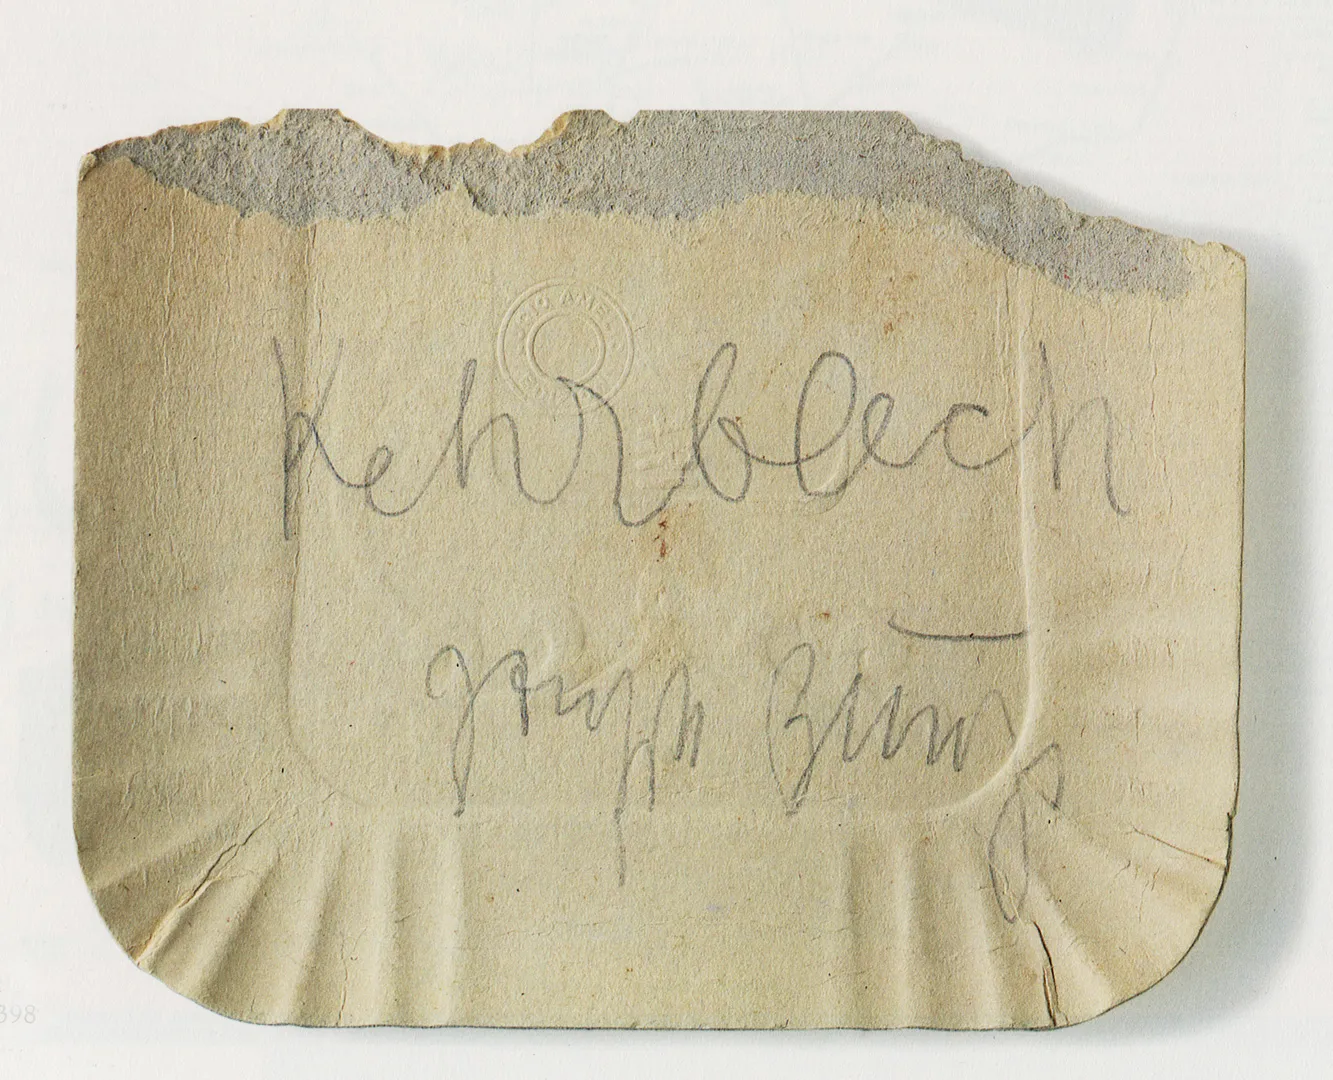 Kehrblech
Joseph Beuys
398